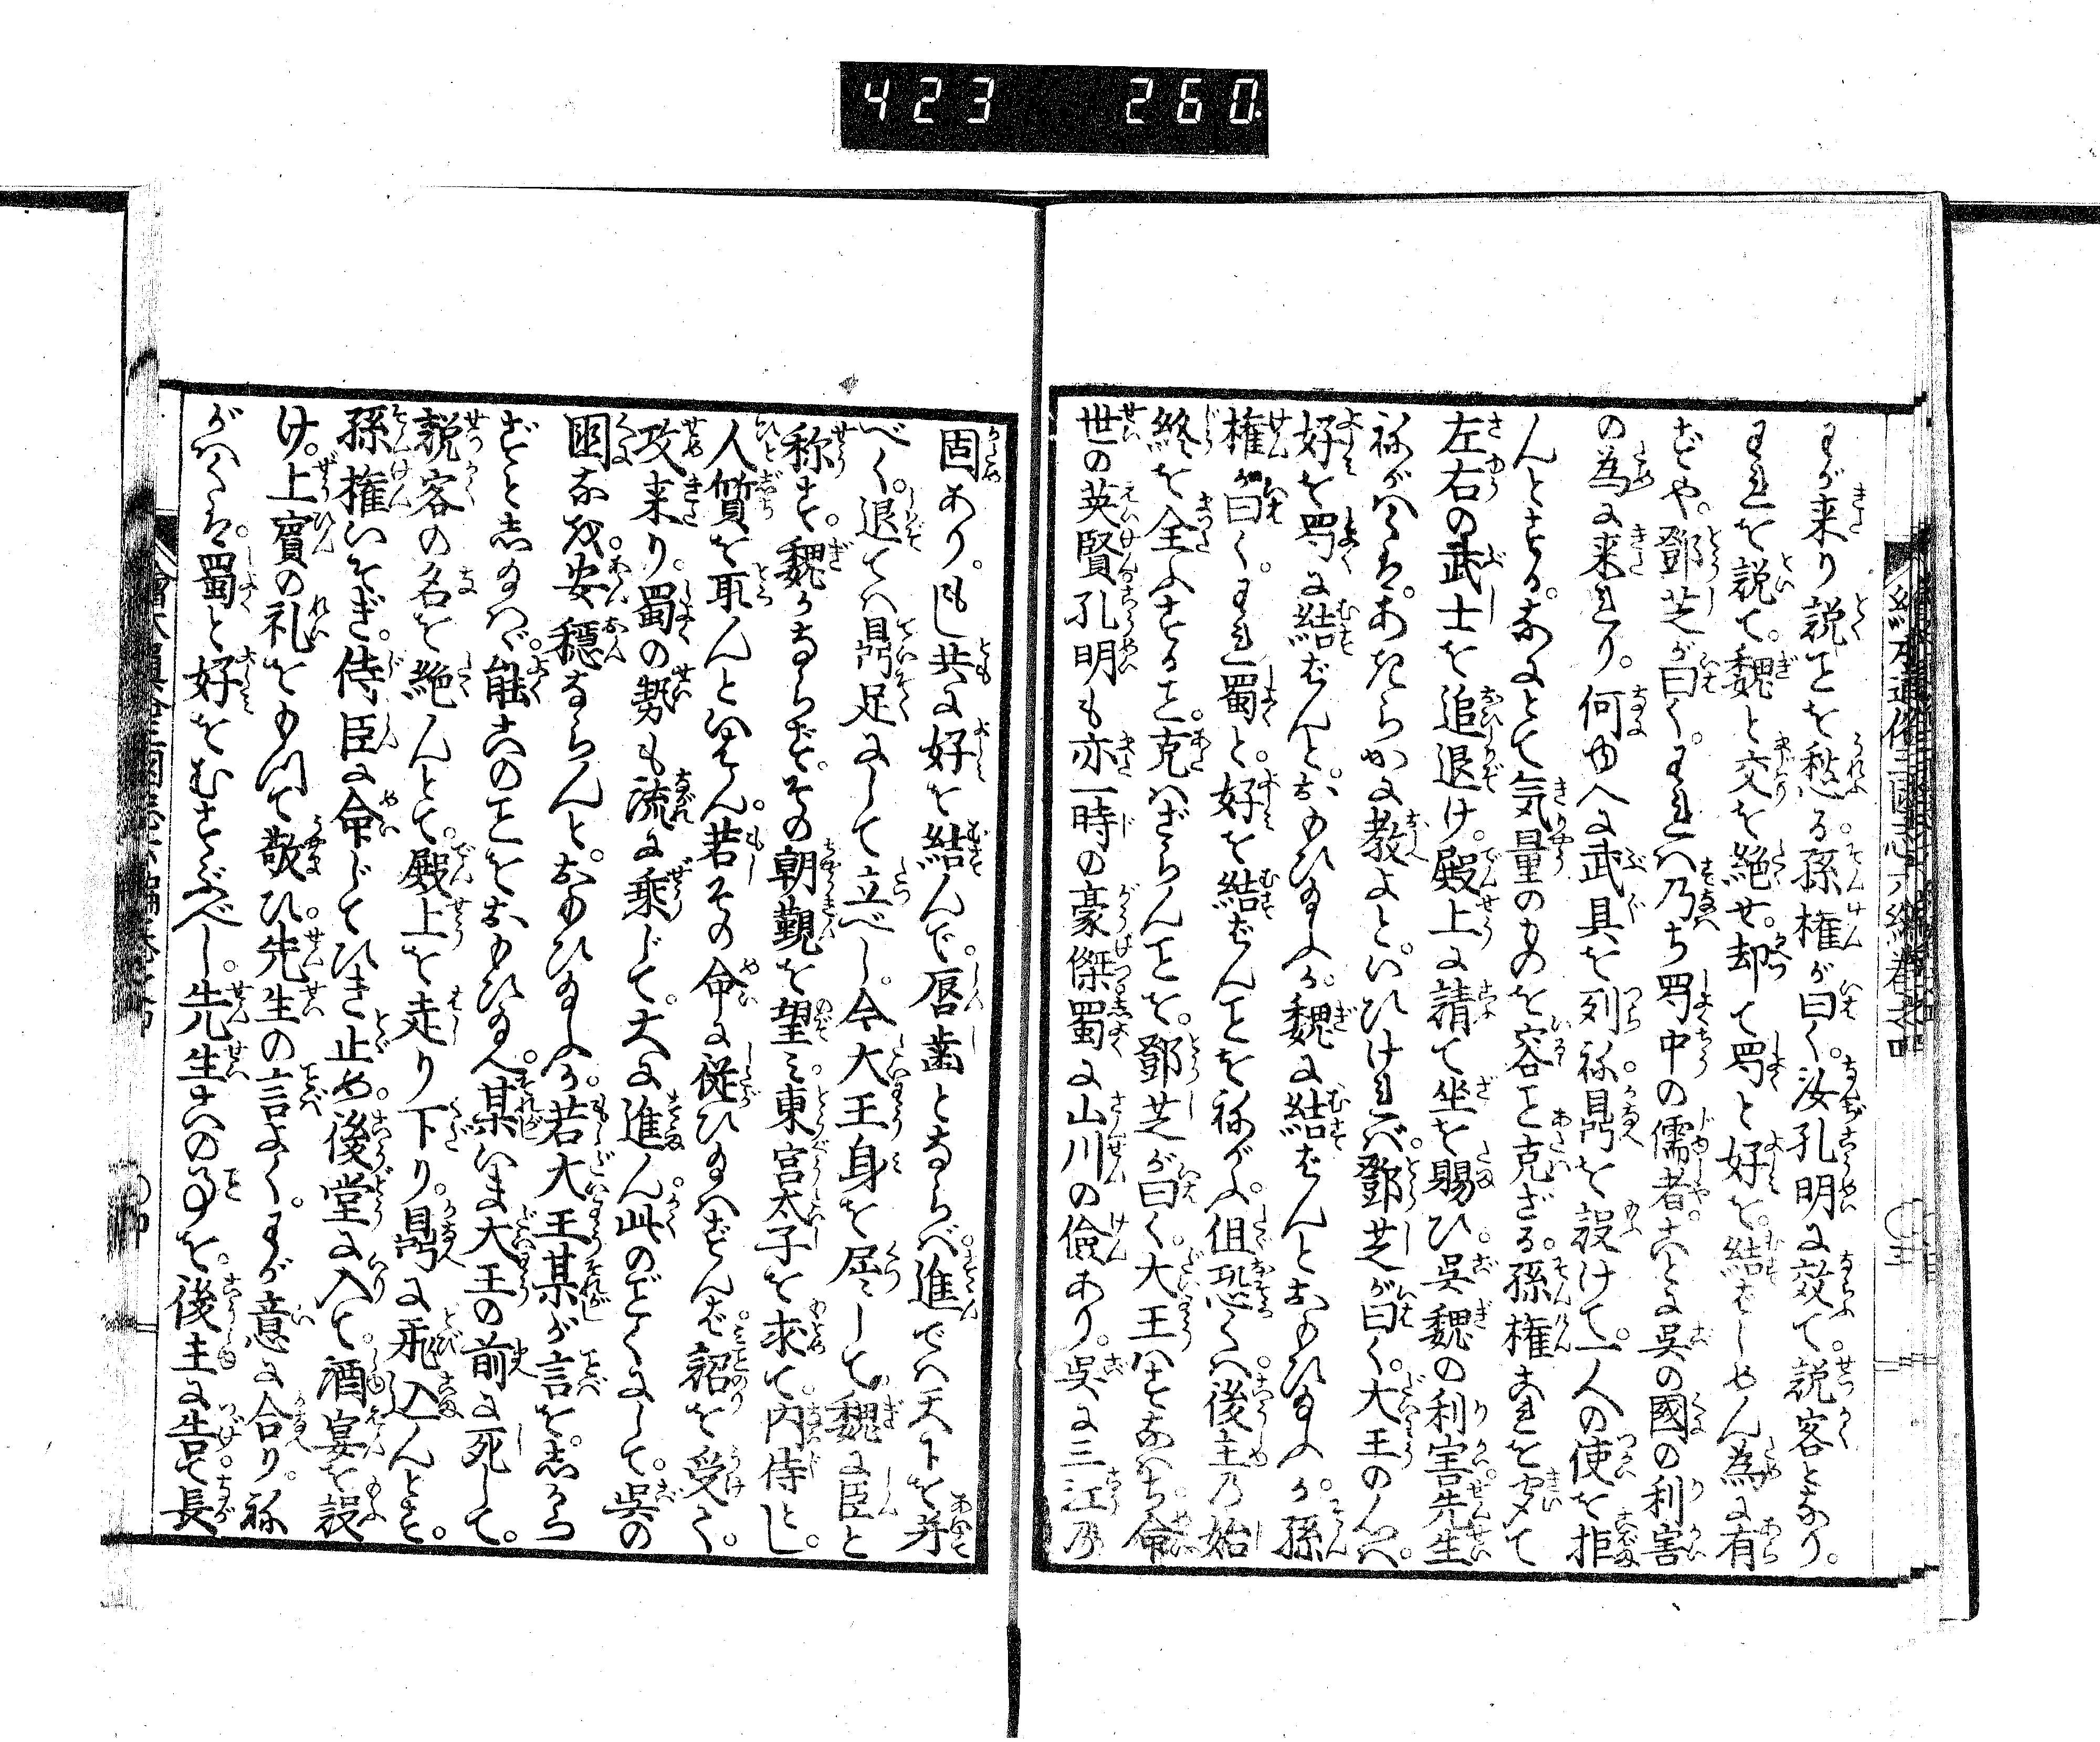 423 260
わが来り説ことを愁る。孫権が曰く。汝孔明に效て。説客となり。
われを説て。魏と交を絶せ。却て蜀と好を。結ばしめん為に有
ずや。鄧芝が曰く。われハ乃ち蜀中の儒者。ことに呉の國の利害
の為に来れり。何ゆへに武具を列ね鼎を設けて。一人の使を拒
んとする。なにとて気量のものを容こと克ざる。孫権これを聞て
左右の武士を追退け。殿上に請て坐を賜ひ。呉魏の利害先生
ねがハくは。あきらかに教よと。いひければ。鄧芝が曰く。大王の心ハ。
好を蜀に結ばんと。おもひ給ふか。魏に結ばんとおもひ給ふか。孫
権が曰く。われ蜀と。好を結ばんことをねがふ。但恐くハ。後主乃始
終を全ふすること。克ハざらんことを。鄧芝が曰く。大王ハすなハち命
世の英賢孔明も亦一時の豪傑蜀に山川の儉あり。呉に三江乃
固あり。もし共に好を結んで。唇歯とならべ。進でハ天下を并
べく。退てハ鼎足にして立べし。今大王身を屈して。魏に臣と
称す。魏かならずその朝觐を望ミ。東宮太子を求て。内侍とし。
人質を取んといはん。若その命に従ひ給へずんば。詔を受く。
攻来り。蜀の勢も流に乗じて。大に進ん。此のごとくにして。呉の
國なを安穏ならんと。おもひ給ふか。若大王某が言を。志から
ずと志給ハゞ。能このことをおもひ給へ。某いま大王の前に死して。
説客の名を絶んとて。殿上を走り下り。鼎に飛込んとす。
孫権いそぎ。侍臣に命じてひき止め。後堂に入て。酒宴を設
け。上賓の礼をもつて敬ひ。先生の言よく。わが意に合り。ね
がハくは。蜀と好をむすぶべし。先生この事を。後主に告て。長